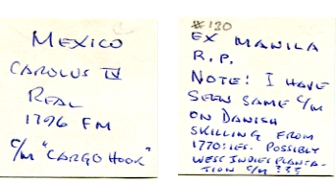 MEXICO
CAROLUS IV
REAL
1796 FM
C/M "CARGO HOOK"
#130
EX MANILA
R.P.
NOTE! I HAVE
SEEN SAME C/M
ON DANISH
SKILLING FROM
1770:IES. POSSIBLY
WEST INDIES PLANTA-
TION C/M ???